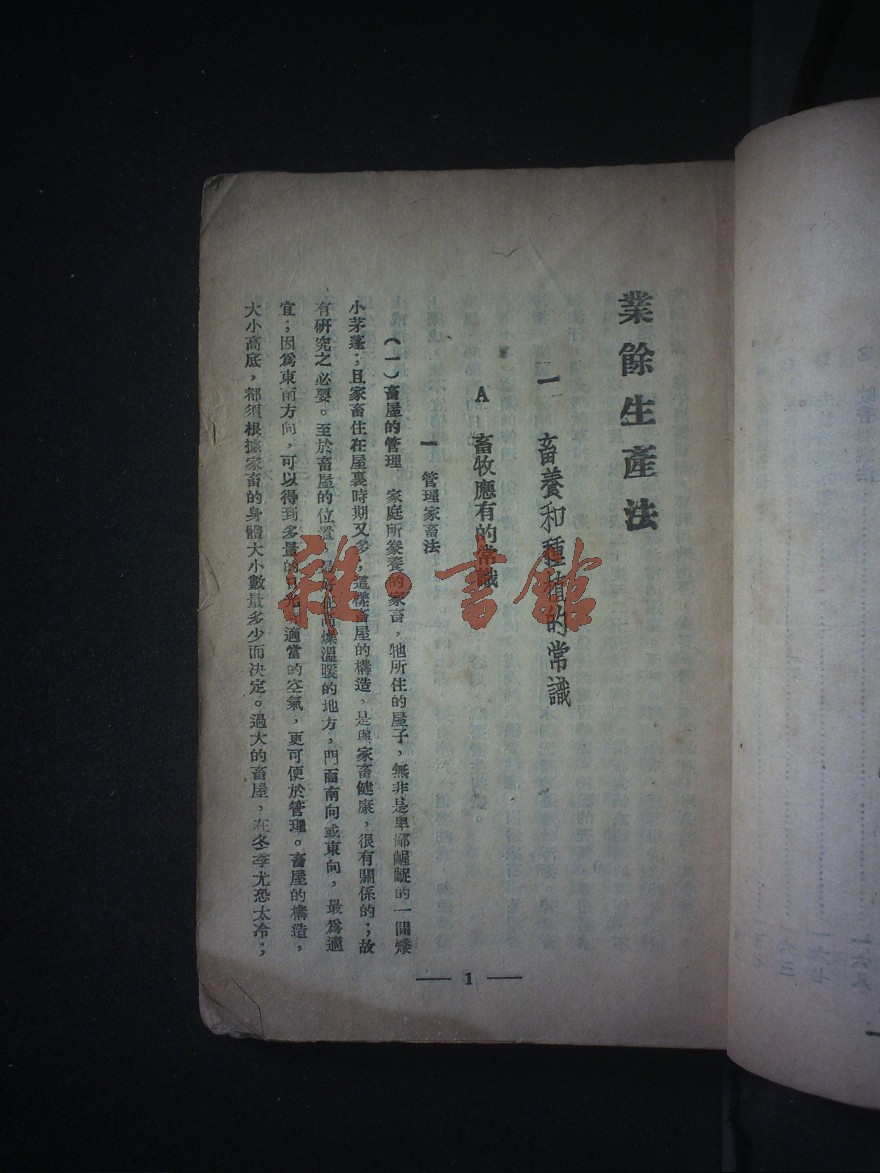 業餘生產法
一 畜養和種植的常識
A 畜牧應有的常識
一 管理家畜法
(一)畜屋的管理 家庭所豢養的家畜,牠所住的屋子,無非是卑鄙齷齪的一間矮
小茅蓬;且家畜住在屋裏時期又多;這樣畜屋的構造,是與家畜健康,很有關係的;故
有研究之必要。至於畜屋的位置,最好在高燥溫暖的地方,門面南向或東向,最爲適
宜;因爲東南方向,可以得到多量的日光,適當的空氣,更可便於管理。畜屋的構造,
大小高底,都須根據家畜的身體大小數量多少而決定。過大的畜屋,在冬季尤恐太冷;
— 1 —
雜·書館